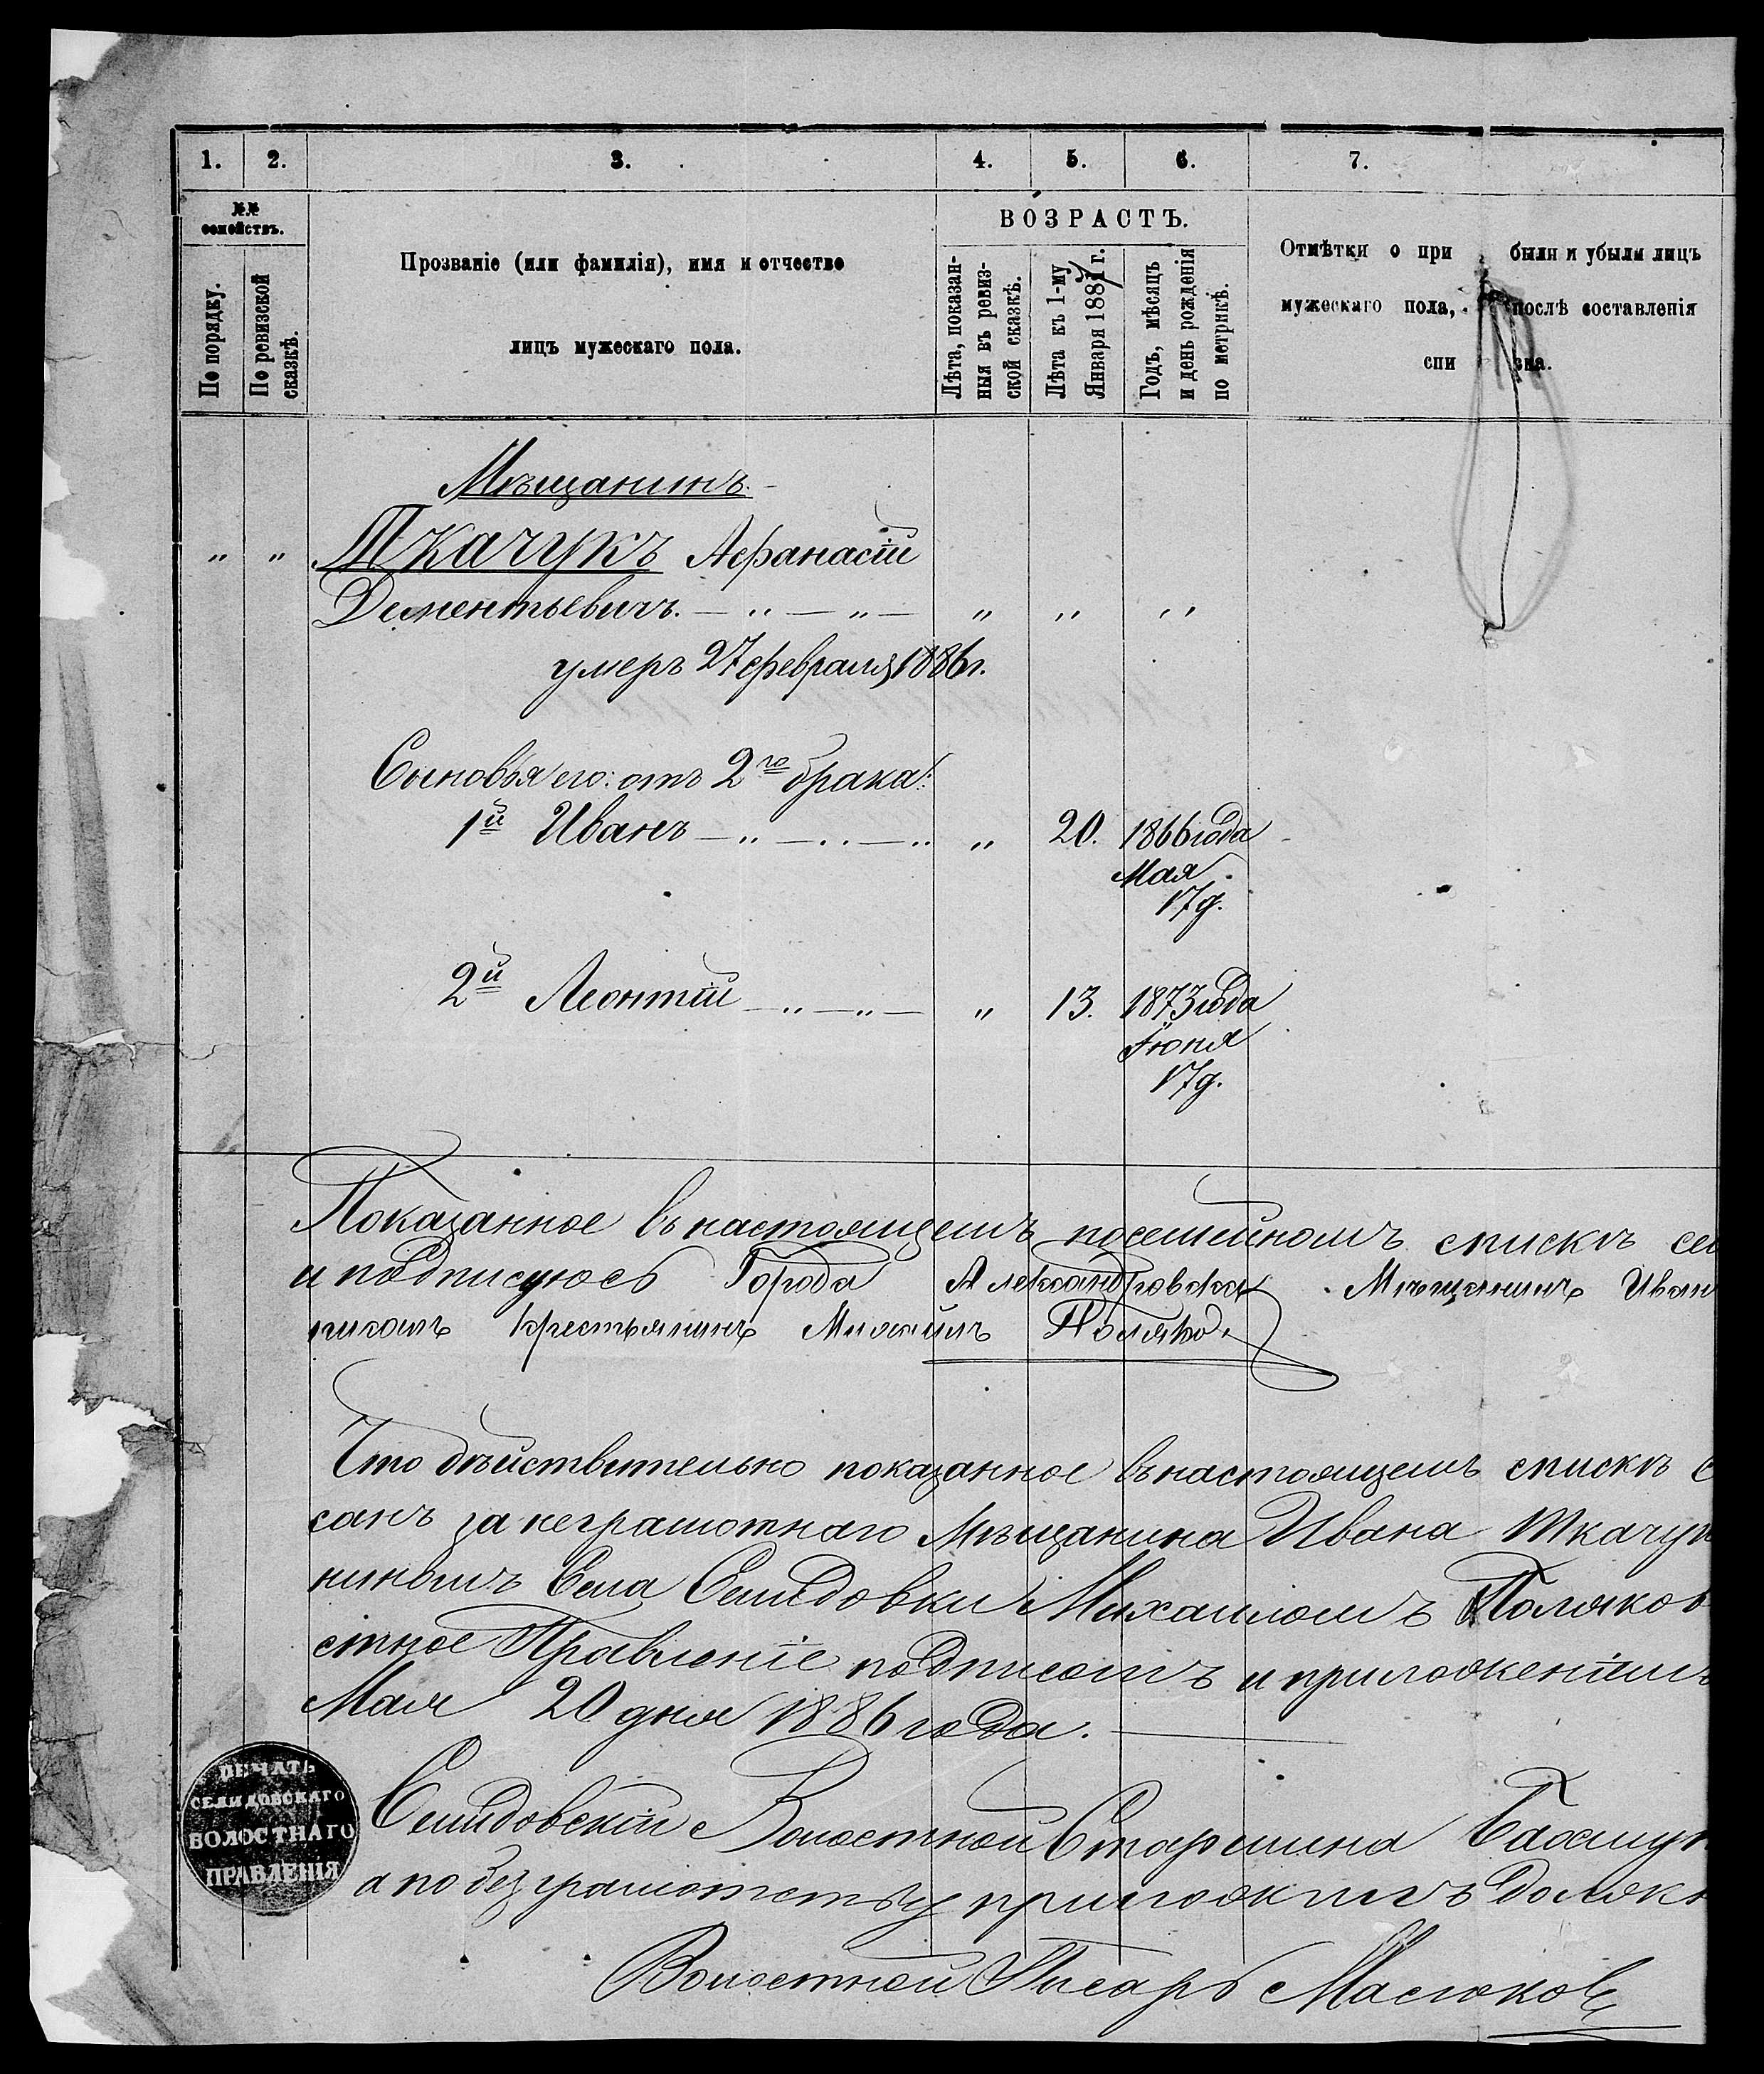 1. 2. 3. 4. 5. 6. 7.
№№ семействъ.
По порядку.
По ревизской сказкѣ.
Прозваніе (или фамилія), имя и отчество
лицъ мужескаго пола.
ВОЗРАСТЪ.
Лѣта, показан-
ныя въ ревиз-
ской сказкѣ.
Лѣта къ 1-му
Января 188 г.
Годъ, мѣсяцъ
и день рожденія
по метрикѣ.
Отмѣтки о при были и убыли лицъ
мужескаго пола, послѣ составленія
спи ска.
Мѣщанинъ.
" " Ткачукъ Афанасій
Дементьевичъ. — " — " — " " "
умеръ 27 февраля 1886 г.
Сыновья его: отъ 2го брака:
1й Иванъ — " — " — " " 20. 1866 года
Мая
17 д.
2й Леонтій — " — " — " 13. 1873 года
Іюня
17 д.
Показанное въ настоящемъ посемейномъ спискѣ сем
и подписуюсь Города Александровска Мѣщанинъ Иван
крестьянинъ Михаилъ Поляков
Что дѣйствительно показанное въ настоящемъ спискѣ с
санъ за неграмотнаго Мѣщанина Ивана Ткачук
ниномъ Села Селидовки Михаиломъ Поляков
стное Правленіе подписомъ и приложеніемъ
Мая 20 дня 1886 года.
ПЕЧАТЬ
СЕЛИДОВСКАГО
ВОЛОСТНАГО
ПРАВЛЕНІЯ
Селидовскій Волостной Старшина
а по безграмотству приложилъ должн
Волостной Писарь Масюков